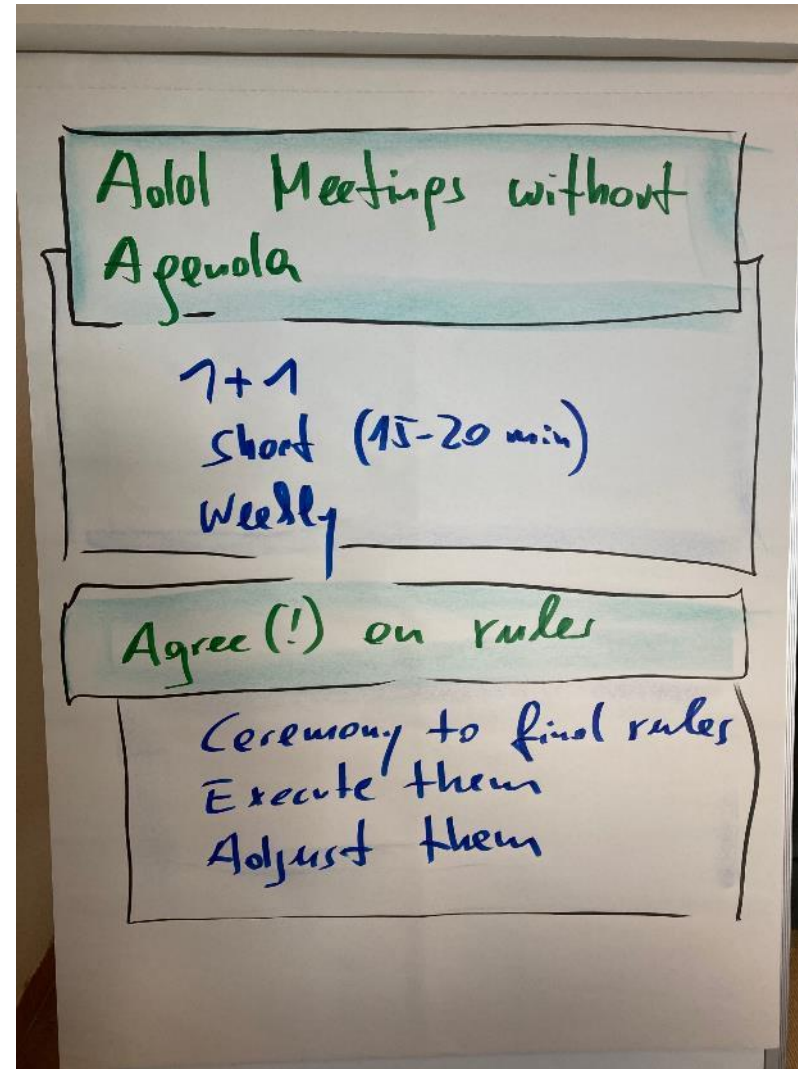 Add Meetings without
Agenda
1+1
Short (15-20 min)
Weekly
Agree(!) on rules
Ceremony to find rules
Execute them
Adjust them